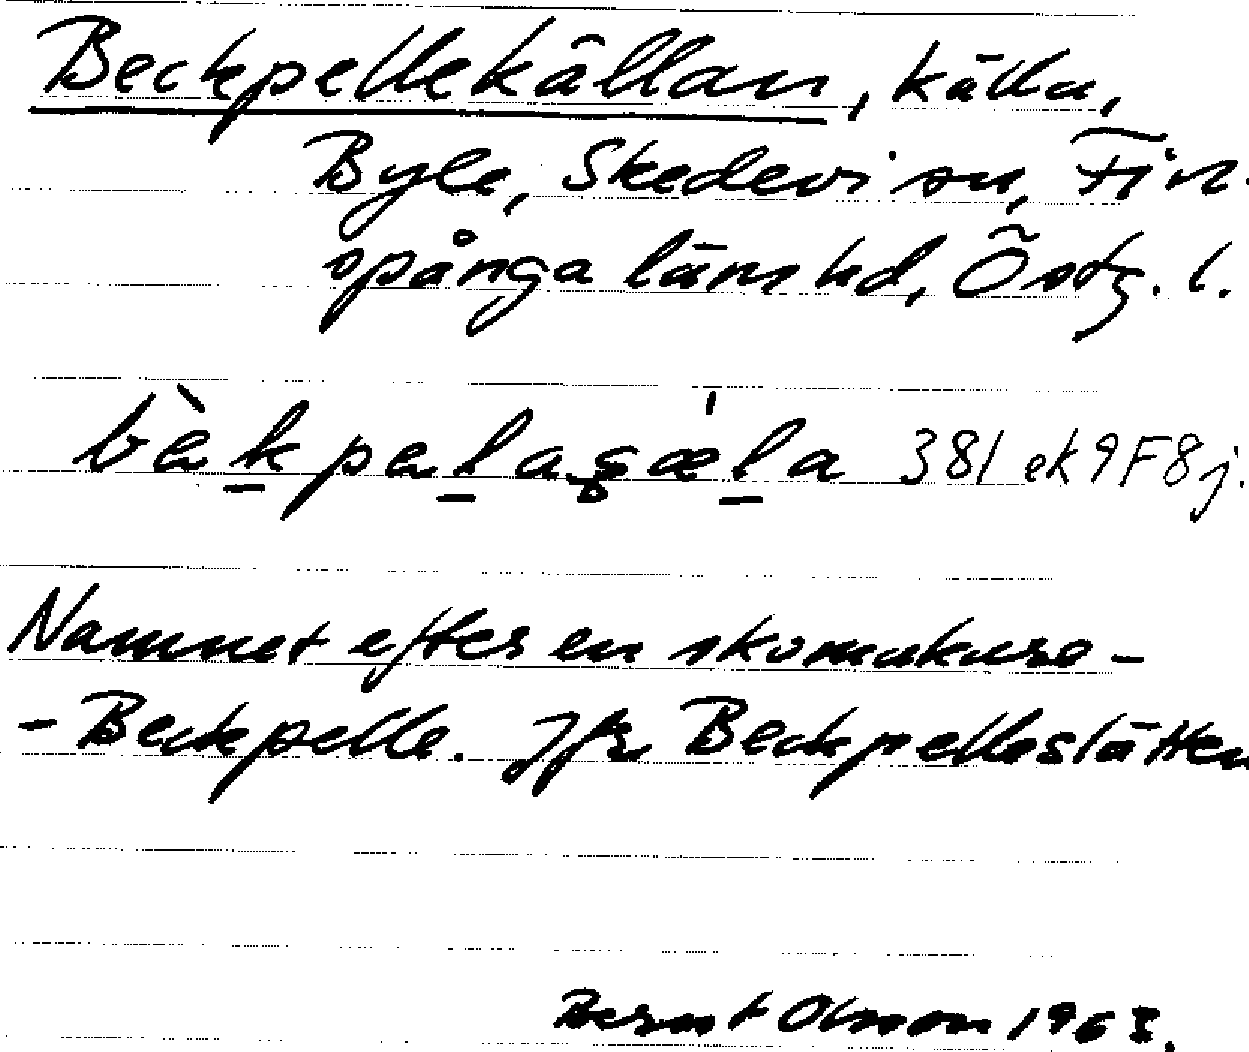 Beckpellekällan, källa,
Byle, Skedevi sn, Fin-
spånga läns hd, Östg. l.
bèkpelaçæ̍la 381 ek 9F8j.
Namnet efter en skomakare -
- Beckpelle. Jfr Beckpelleslätten
Bernt Olsson 1963.